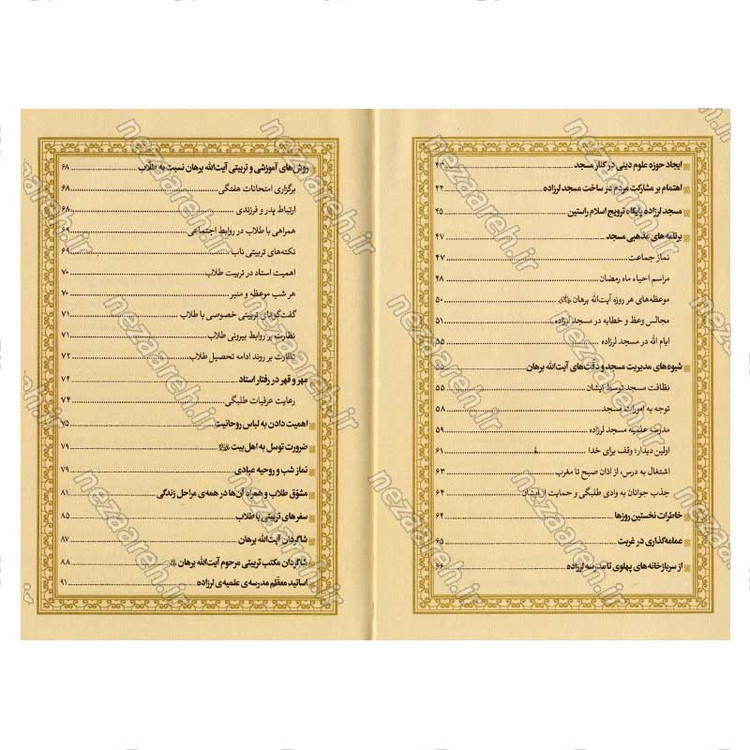 ایجاد حوزه علوم دینی در کنار مسجد ۴۳
اهتمام بر مشارکت مردم در ساخت مسجد لرزاده ۴۴
مسجد لرزاده پایگاه ترویج اسلام راستین ۴۵
برنامه‌های مذهبی مسجد ۴۷
نماز جماعت ۴۷
مراسم احیاء ماه رمضان ۴۸
موعظه‌های هر روزه آیت‌الله برهان ۵۰
مجالس وعظ و خطابه در مسجد لرزاده ۵۱
ایام الله در مسجد لرزاده ۵۵
شیوه‌های مدیریت مسجد و دقت‌های آیت‌الله برهان ۵۵
نظافت مسجد توسط ایشان ۵۵
توجه به امورات مسجد ۵۸
مدرسه علمیه مسجد لرزاده ۵۹
اولین دیدار؛ وقف برای خدا ۶۱
اشتغال به درس، از اذان صبح تا مغرب ۶۳
جذب جوانان به وادی طلبگی و حمایت از ایشان ۶۴
خاطرات نخستین روزها ۶۴
عمامه‌گذاری در غربت ۶۵
از سربازخانه‌های پهلوی تا مدرسه لرزاده ۶۶
روش‌های آموزشی و تربیتی آیت‌الله برهان نسبت به طلاب ۶۸
برگزاری امتحانات هفتگی ۶۸
ارتباط پدر و فرزندی ۶۸
همراهی با طلاب در روابط اجتماعی ۶۹
نکته‌های تربیتی ناب ۶۹
اهمیت استاد در تربیت طلاب ۷۰
هر شب موعظه و منبر ۷۰
گفت‌گوهای تربیتی خصوصی با طلاب ۷۱
نظارت بر روابط بیرونی طلاب ۷۱
نظارت بر روند ادامه تحصیل طلاب ۷۲
مهر و قهر در رفتار استاد ۷۴
رعایت عرفیات طلبگی ۷۴
اهمیت دادن به لباس روحانیت ۷۵
ضرورت توسل به اهل‌بیت ۷۹
نماز شب و روحیه عبادی ۷۹
مشوّق طلاب و همراه آن‌ها در همه‌ی مراحل زندگی ۸۱
سفرهای تربیتی با طلاب ۸۵
شاگردان آیت‌الله برهان ۸۷
شاگردان مکتب تربیتی مرحوم آیت‌الله برهان ۸۸
اساتید معظّم مدرسه‌ی علمیه‌ی لرزاده ۹۱
nezaareh.ir